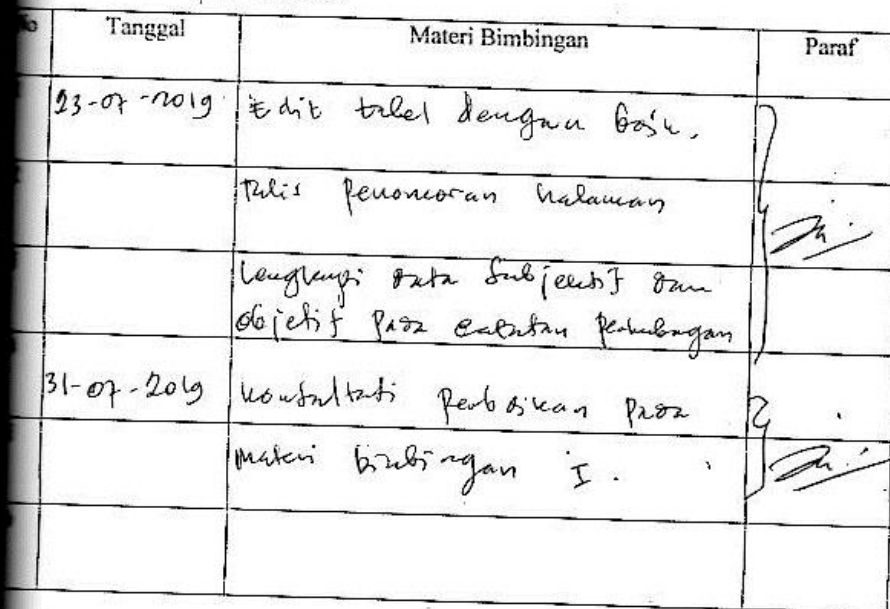 No Tanggal Materi Bimbingan Paraf
23-07-2019 Edit tabel dengan baik.
Tulis penomoran halaman
Lengkapi data Subjektif dan
objektif pada catatan perkembangan
31-07-2019 Konsultasi Perbaikan pada
materi bimbingan I.